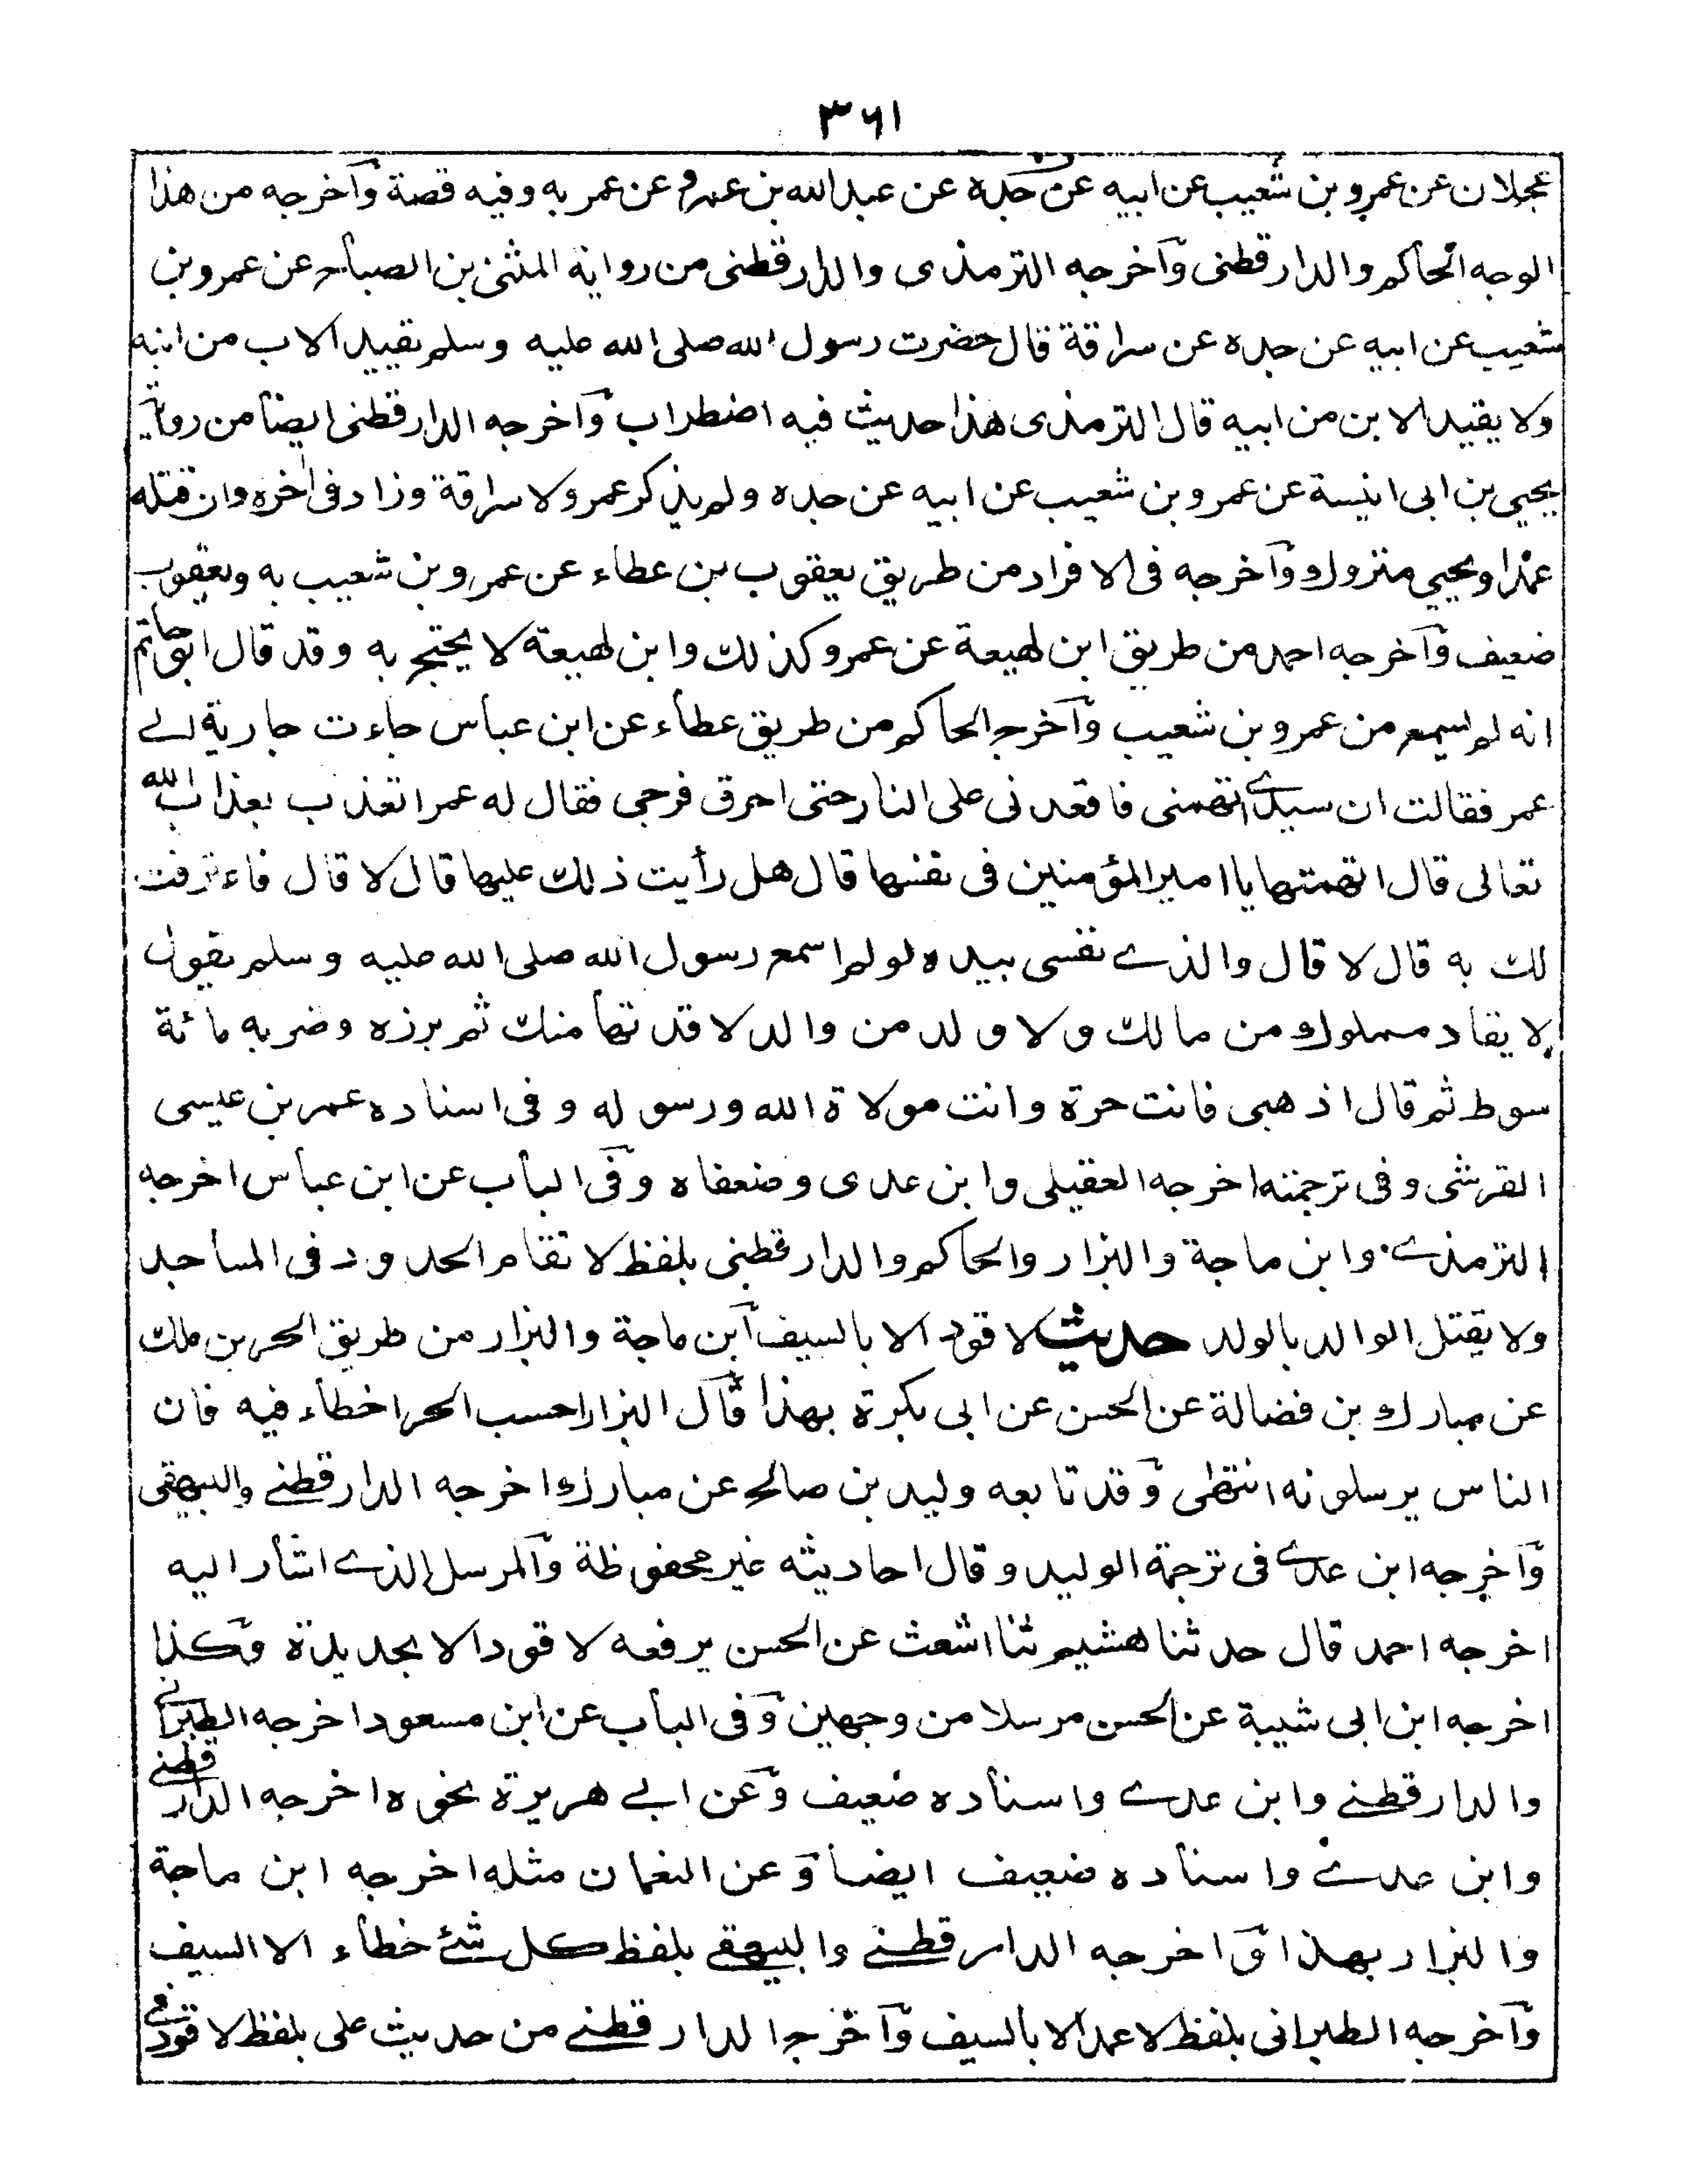 ٣٦١
عجلان عن عمرو بن شعيب عن ابيه عن جده عن عبد الله بن عمرو عن عمر به وفيه قصة وآخرجه من هذا
الوجه الحاكم والدارقطنى وآخرجه الترمذى والدارقطنى من رواية المثنى بن الصباح عن عمرو بن
شعيب عن ابيه عن جده عن سراقة قال حضرت رسول الله صلى الله عليه وسلم يقيد الاب من ابنه
ولا يقيد الابن من ابيه قال الترمذى هذا حديث فيه اضطراب وآخرجه الدارقطنى ايضا من رواية
يحيي بن ابى انيسة عن عمرو بن شعيب عن ابيه عن جده ولم يذكر عمر ولا سراقة وزاد فى اٰخره وان قتله
عمدا ويحيي متروك وآخرجه فى الافراد من طريق يعقوب بن عطاء عن عمرو بن شعيب به ويعقوب
ضعيف وآخرجه احمد من طريق ابن لهيعة عن عمرو كذلك وابن لهيعة لا يحتج به وقد قال ابو حاتم
انه لم يسمع من عمرو بن شعيب وآخرج الحاكم من طريق عطاء عن ابن عباس جاءت جارية الے
عمر فقالت ان سيدے اتهمنى فاقعدنى على النار حتى احرق فرجى فقال له عمر اتعذب بعذاب الله
تعالى قال اتهمتها يا امير المؤمنين فى نفسها قال هل رأيت ذلك عليها قال لا قال فاعترفت
لك به قال لا قال والذے نفسى بيده لو لم اسمع رسول الله صلى الله عليه وسلم يقول
لا يقاد مملوك من مالك ولا ولد من والد لاقدتها منك ثم برزه وضربه مائة
سوط ثم قال اذهبى فانت حرة وانت مولاة الله ورسوله وفى اسناده عمر بن عيسى
القرشى وفى ترجمته اخرجه العقيلى وابن عدى وضعفاه وفى الباب عن ابن عباس اخرجه
الترمذے وابن ماجة والبزار والحاكم والدارقطنى بلفظ لا تقام الحدود فى المساجد
ولا يقتل الوالد بالولد حديث لا قود الا بالسيف آبن ماجة والبزار من طريق الحر بن ملك
عن مبارك بن فضالة عن الحسن عن ابى بكرة بهذا قآل البزار احسب الحر اخطاء فيه فان
الناس يرسلونه انتهى وقد تابعه وليد بن صالح عن مبارك اخرجه الدارقطنے والبيهقى
وآخرجه ابن عدے فى ترجمة الوليد وقال احاديثه غير محفوظة وآلمرسل الذے اشار اليه
اخرجه احمد قال حدثنا هشيم ثنا اشعث عن الحسن يرفعه لا قود الا بحديدة وكذا
اخرجه ابن ابى شيبة عن الحسن مرسلا من وجهين وفى الباب عن ابن مسعود اخرجه الطبرانے
والدارقطنے وابن عدے واسناده ضعيف وعن ابے هريرة نحوه اخرجه الدارقطنے
وابن عدے واسناده ضعيف ايضا وعن النعمان مثله اخرجه ابن ماجة
والبزار بهذا وآخرجه الدارقطنے والبيهقے بلفظ كل شئ خطاء الا السيف
وآخرجه الطبرانى بلفظ لا عمد الا بالسيف وآخرج الدارقطنے من حديث على بلفظ لا قود فے